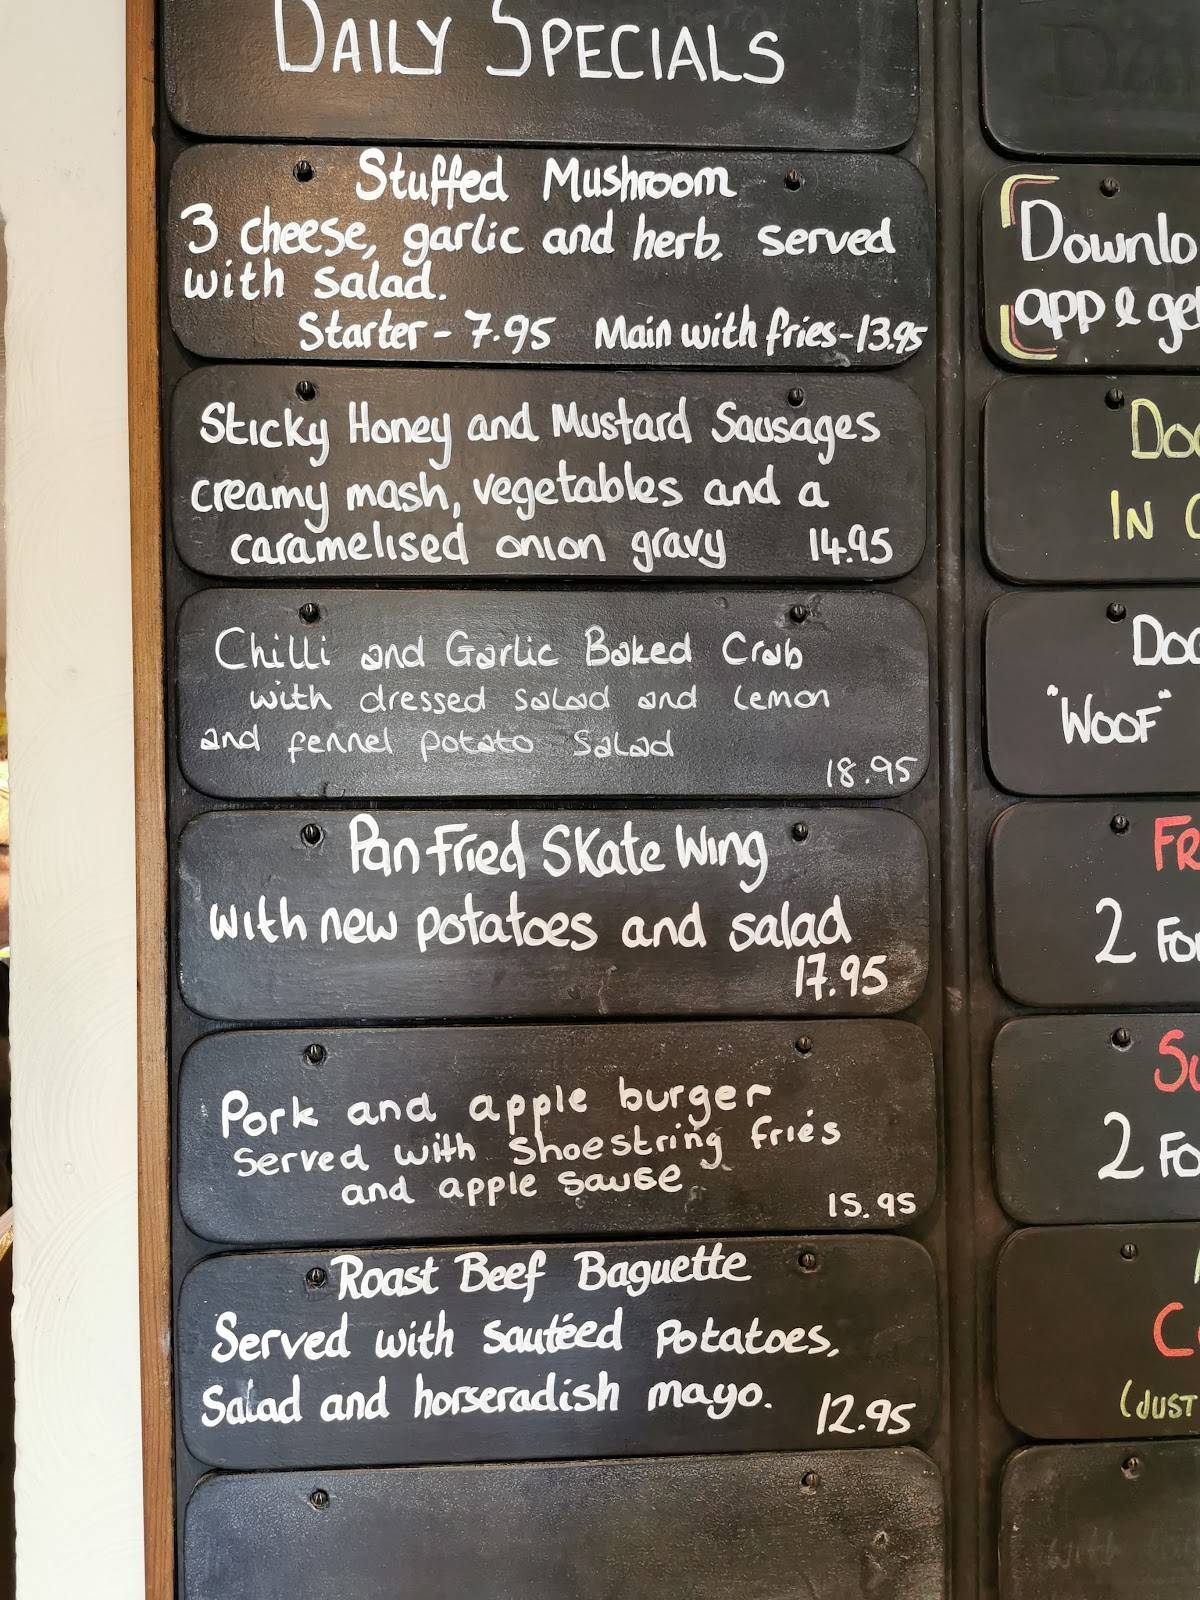 DAILY SPECIALS
Stuffed Mushroom
3 cheese, garlic and herb, served
with salad.
Starter - 7.95 Main with fries - 13.95
Sticky Honey and Mustard Sausages
creamy mash, vegetables and a
caramelised onion gravy 14.95
Chilli and Garlic Baked Crab
with dressed salad and lemon
and fennel potato salad
18.95
Pan Fried Skate Wing
with new potatoes and salad
17.95
Pork and apple burger
Served with Shoestring fries
and apple sause
15.95
Roast Beef Baguette
Served with sautéed potatoes,
Salad and horseradish mayo. 12.95
Downlo
app & ge
Dog
IN
Dog
"WOOF"
FR
2 For
SU
2 Fo
C
(JUST